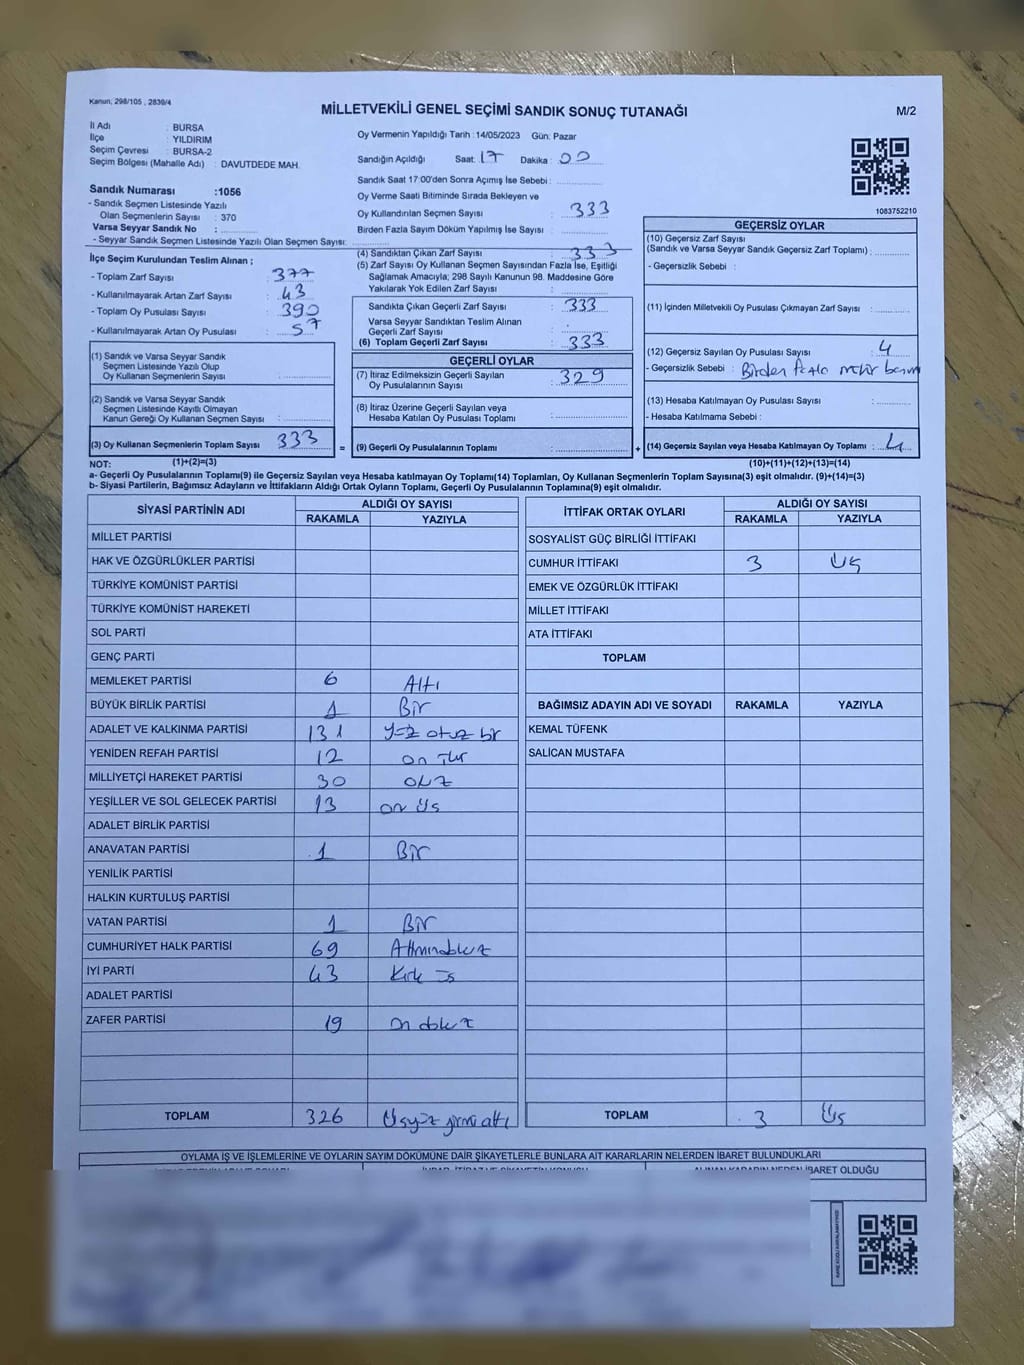 Kanun; 298/105 , 2839/4
MİLLETVEKİLİ GENEL SEÇİMİ SANDIK SONUÇ TUTANAĞI
M/2
İl Adı : BURSA
İlçe : YILDIRIM
Seçim Çevresi : BURSA-2
Seçim Bölgesi (Mahalle Adı) : DAVUTDEDE MAH.
Sandık Numarası :1056
- Sandık Seçmen Listesinde Yazılı
Olan Seçmenlerin Sayısı : 370
Varsa Seyyar Sandık No :
- Seyyar Sandık Seçmen Listesinde Yazılı Olan Seçmen Sayısı:
İlçe Seçim Kurulundan Teslim Alınan ;
- Toplam Zarf Sayısı : 377
- Kullanılmayarak Artan Zarf Sayısı : 43
- Toplam Oy Pusulası Sayısı : 390
- Kullanılmayarak Artan Oy Pusulası : 57
(1) Sandık ve Varsa Seyyar Sandık
Seçmen Listesinde Yazılı Olup
Oy Kullanan Seçmenlerin Sayısı :
(2) Sandık ve Varsa Seyyar Sandık
Seçmen Listesinde Kayıtlı Olmayan
Kanun Gereği Oy Kullanan Seçmen Sayısı :
(3) Oy Kullanan Seçmenlerin Toplam Sayısı 333
(1)+(2)=(3)
Oy Vermenin Yapıldığı Tarih : 14/05/2023 Gün: Pazar
Sandığın Açıldığı Saat: 17 Dakika : 00
Sandık Saat 17:00'den Sonra Açımış İse Sebebi :
Oy Verme Saati Bitiminde Sırada Bekleyen ve
Oy Kullandırılan Seçmen Sayısı : 333
Birden Fazla Sayım Döküm Yapılmış İse Sayısı :
(4) Sandıktan Çıkan Zarf Sayısı : 333
(5) Zarf Sayısı Oy Kullanan Seçmen Sayısından Fazla İse, Eşitliği
Sağlamak Amacıyla; 298 Sayılı Kanunun 98. Maddesine Göre
Yakılarak Yok Edilen Zarf Sayısı :
Sandıkta Çıkan Geçerli Zarf Sayısı : 333
Varsa Seyyar Sandıktan Teslim Alınan
Geçerli Zarf Sayısı :
(6) Toplam Geçerli Zarf Sayısı : 333
GEÇERLİ OYLAR
(7) İtiraz Edilmeksizin Geçerli Sayılan
Oy Pusulalarının Sayısı : 329
(8) İtiraz Üzerine Geçerli Sayılan veya
Hesaba Katılan Oy Pusulası Toplamı :
= (9) Geçerli Oy Pusulalarının Toplamı :
1083752210
GEÇERSİZ OYLAR
(10) Geçersiz Zarf Sayısı
(Sandık ve Varsa Seyyar Sandık Geçersiz Zarf Toplamı) :
- Geçersizlik Sebebi :
(11) İçinden Milletvekili Oy Pusulası Çıkmayan Zarf Sayısı :
(12) Geçersiz Sayılan Oy Pusulası Sayısı : 4
- Geçersizlik Sebebi : Birden fazla mühür
(13) Hesaba Katılmayan Oy Pusulası Sayısı :
- Hesaba Katılmama Sebebi :
+ (14) Geçersiz Sayılan veya Hesaba Katılmayan Oy Toplamı : 4
(10)+(11)+(12)+(13)=(14)
NOT:
a- Geçerli Oy Pusulalarının Toplamı(9) ile Geçersiz Sayılan veya Hesaba katılmayan Oy Toplamı(14) Toplamları, Oy Kullanan Seçmenlerin Toplam Sayısına(3) eşit olmalıdır. (9)+(14)=(3)
b- Siyasi Partilerin, Bağımsız Adayların ve İttifakların Aldığı Ortak Oyların Toplamı, Geçerli Oy Pusulalarının Toplamına(9) eşit olmalıdır.
SİYASİ PARTİNİN ADI
ALDIĞI OY SAYISI
RAKAMLA YAZIYLA
MİLLET PARTİSİ
HAK VE ÖZGÜRLÜKLER PARTİSİ
TÜRKİYE KOMÜNİST PARTİSİ
TÜRKİYE KOMÜNİST HAREKETİ
SOL PARTİ
GENÇ PARTİ
MEMLEKET PARTİSİ 6 Altı
BÜYÜK BİRLİK PARTİSİ 1 Bir
ADALET VE KALKINMA PARTİSİ 131 yüz otuz bir
YENİDEN REFAH PARTİSİ 12 on iki
MİLLİYETÇİ HAREKET PARTİSİ 30 otuz
YEŞİLLER VE SOL GELECEK PARTİSİ 13 on üç
ADALET BİRLİK PARTİSİ
ANAVATAN PARTİSİ 1 Bir
YENİLİK PARTİSİ
HALKIN KURTULUŞ PARTİSİ
VATAN PARTİSİ 1 Bir
CUMHURİYET HALK PARTİSİ 69 Altmışdokuz
İYİ PARTİ 43 Kırk üç
ADALET PARTİSİ
ZAFER PARTİSİ 19 on dokuz
TOPLAM 326 Üçyüz yirmi altı
İTTİFAK ORTAK OYLARI
ALDIĞI OY SAYISI
RAKAMLA YAZIYLA
SOSYALİST GÜÇ BİRLİĞİ İTTİFAKI
CUMHUR İTTİFAKI 3 Üç
EMEK VE ÖZGÜRLÜK İTTİFAKI
MİLLET İTTİFAKI
ATA İTTİFAKI
TOPLAM
BAĞIMSIZ ADAYIN ADI VE SOYADI RAKAMLA YAZIYLA
KEMAL TÜFENK
SALİCAN MUSTAFA
TOPLAM 3 Üç
OYLAMA İŞ VE İŞLEMLERİNE VE OYLARIN SAYIM DÖKÜMÜNE DAİR ŞİKAYETLERLE BUNLARA AİT KARARLARIN NELERDEN İBARET BULUNDUKLARI
ALINAN KARARIN NEDEN İBARET OLDUĞU